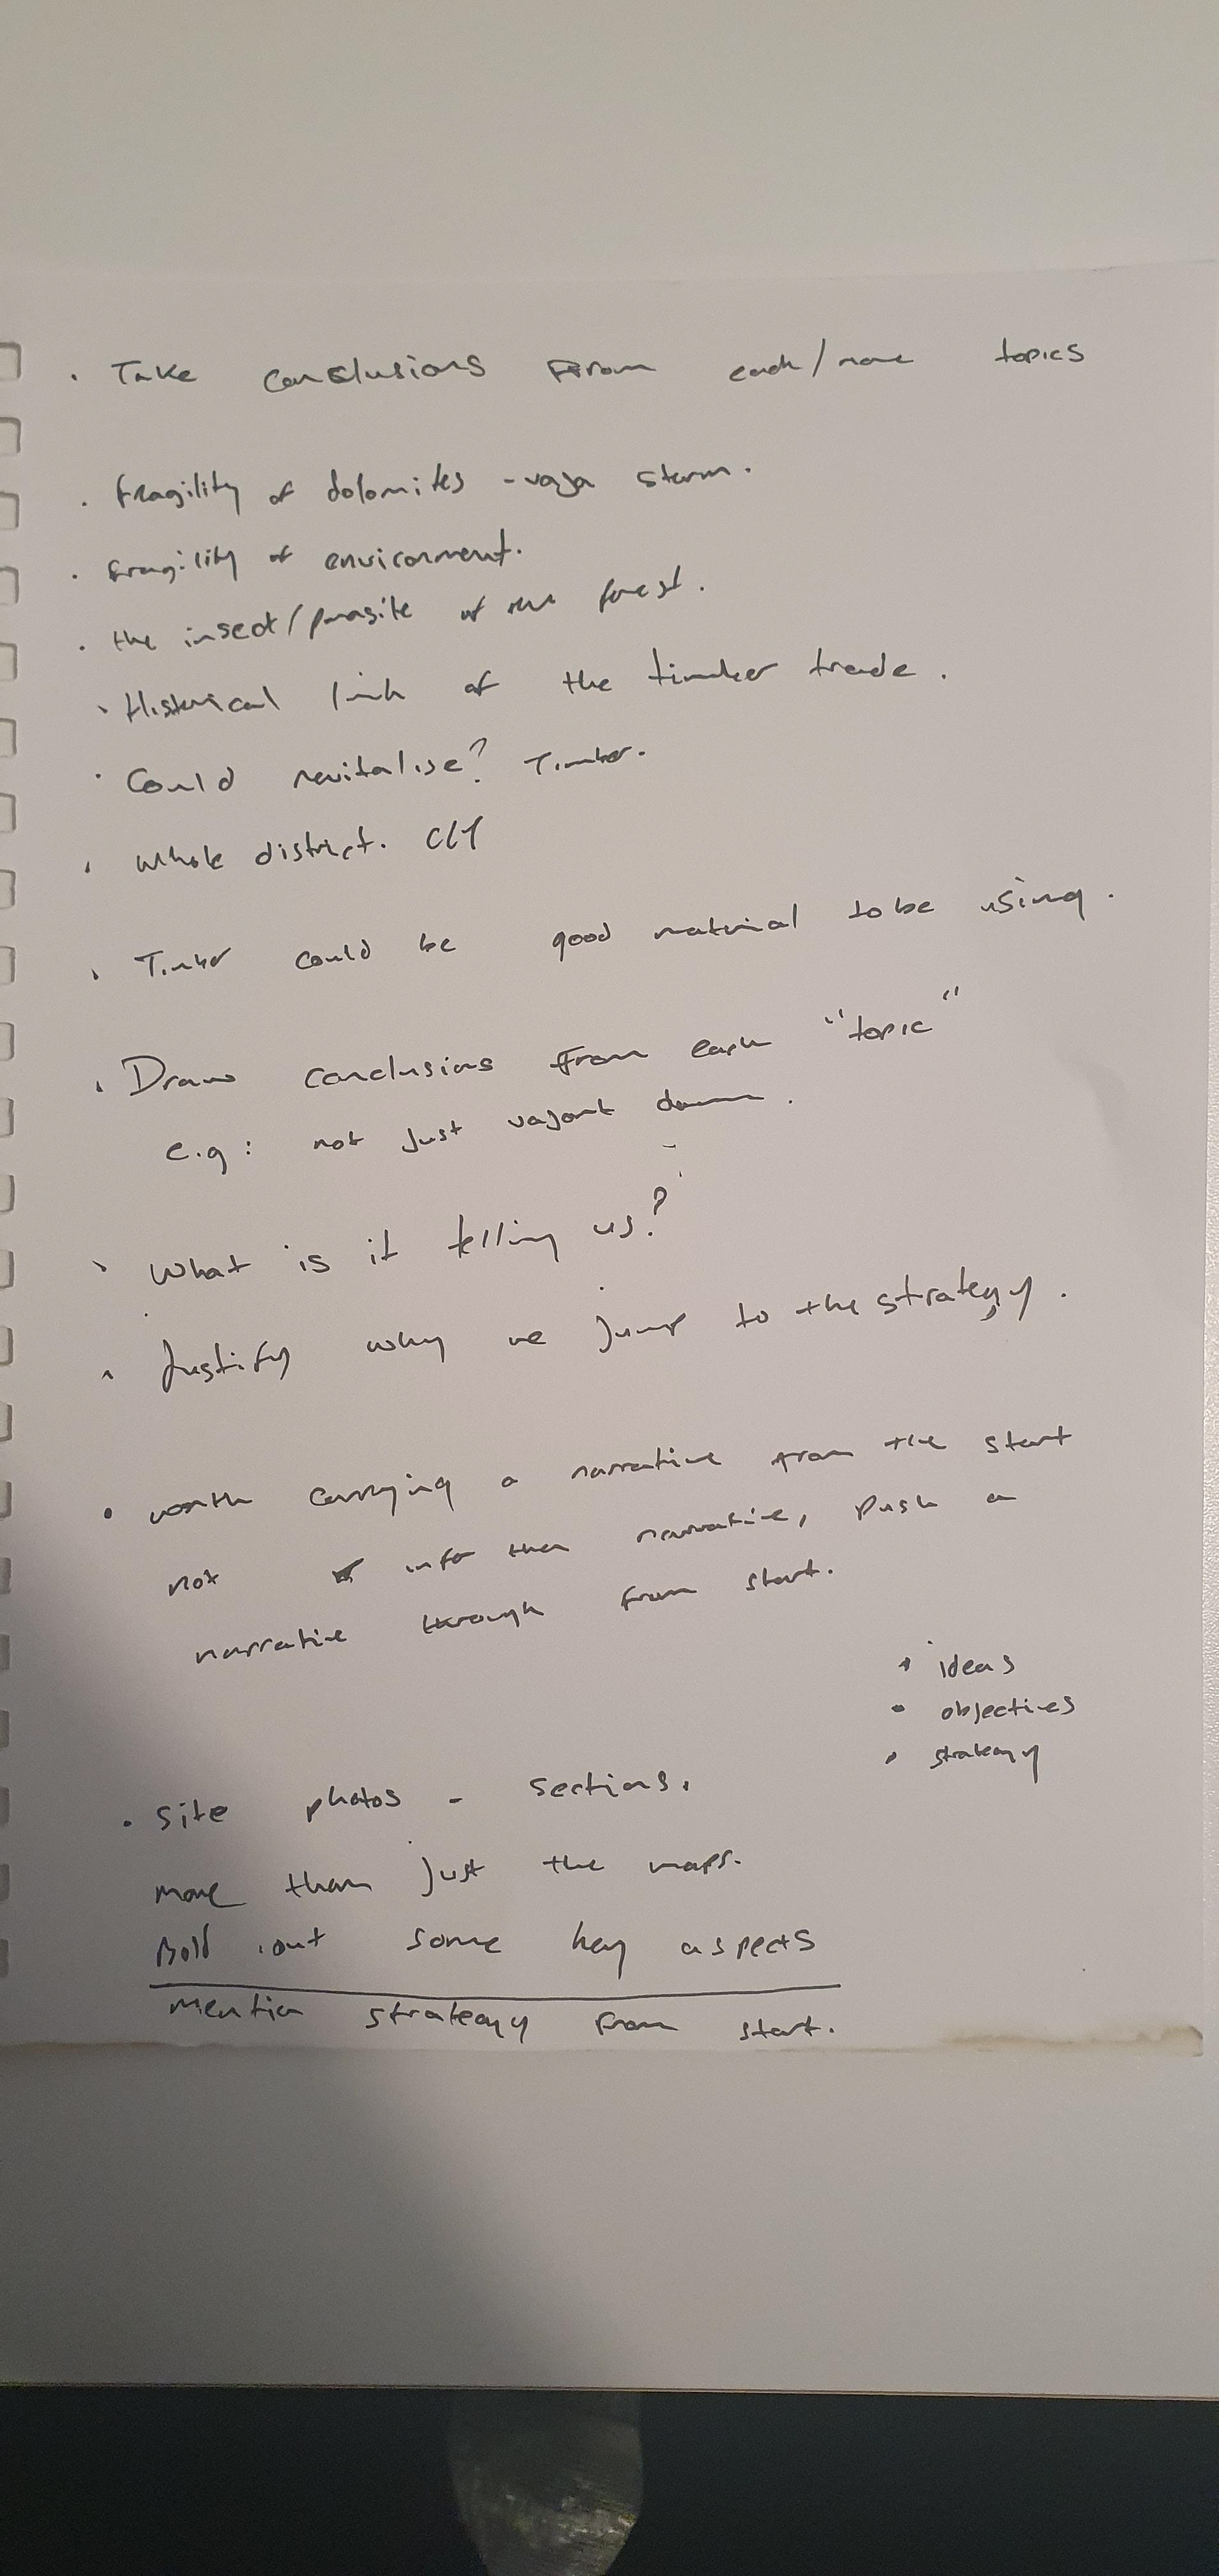 . Take conclusions from each/more topics
. fragility of dolomites - vaja storm.
. fragility of environment.
. the insect/parasite of the forest.
. Historical link of the timber trade.
. Could revitalise? Timber.
. Whole district. CLT
. Timber could be good material to be using.
. Draw conclusions from each "topic"
e.g: not just vajont dam.
. What is it telling us?
. Justify why we jump to the strategy.
. worth carrying a narrative from the start
not info then narrative, push a
narrative through from start.
. ideas
. objectives
. strategy
. site photos - sections.
more than just the maps.
Bold out some key aspects
mention strategy from start.